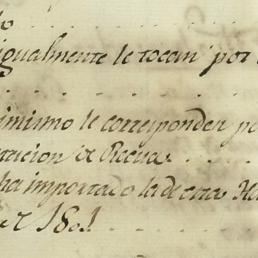 igualmente le tocan por
inimo le corresponden po
tacion de Recua
ha importado la de esta Ha
1801